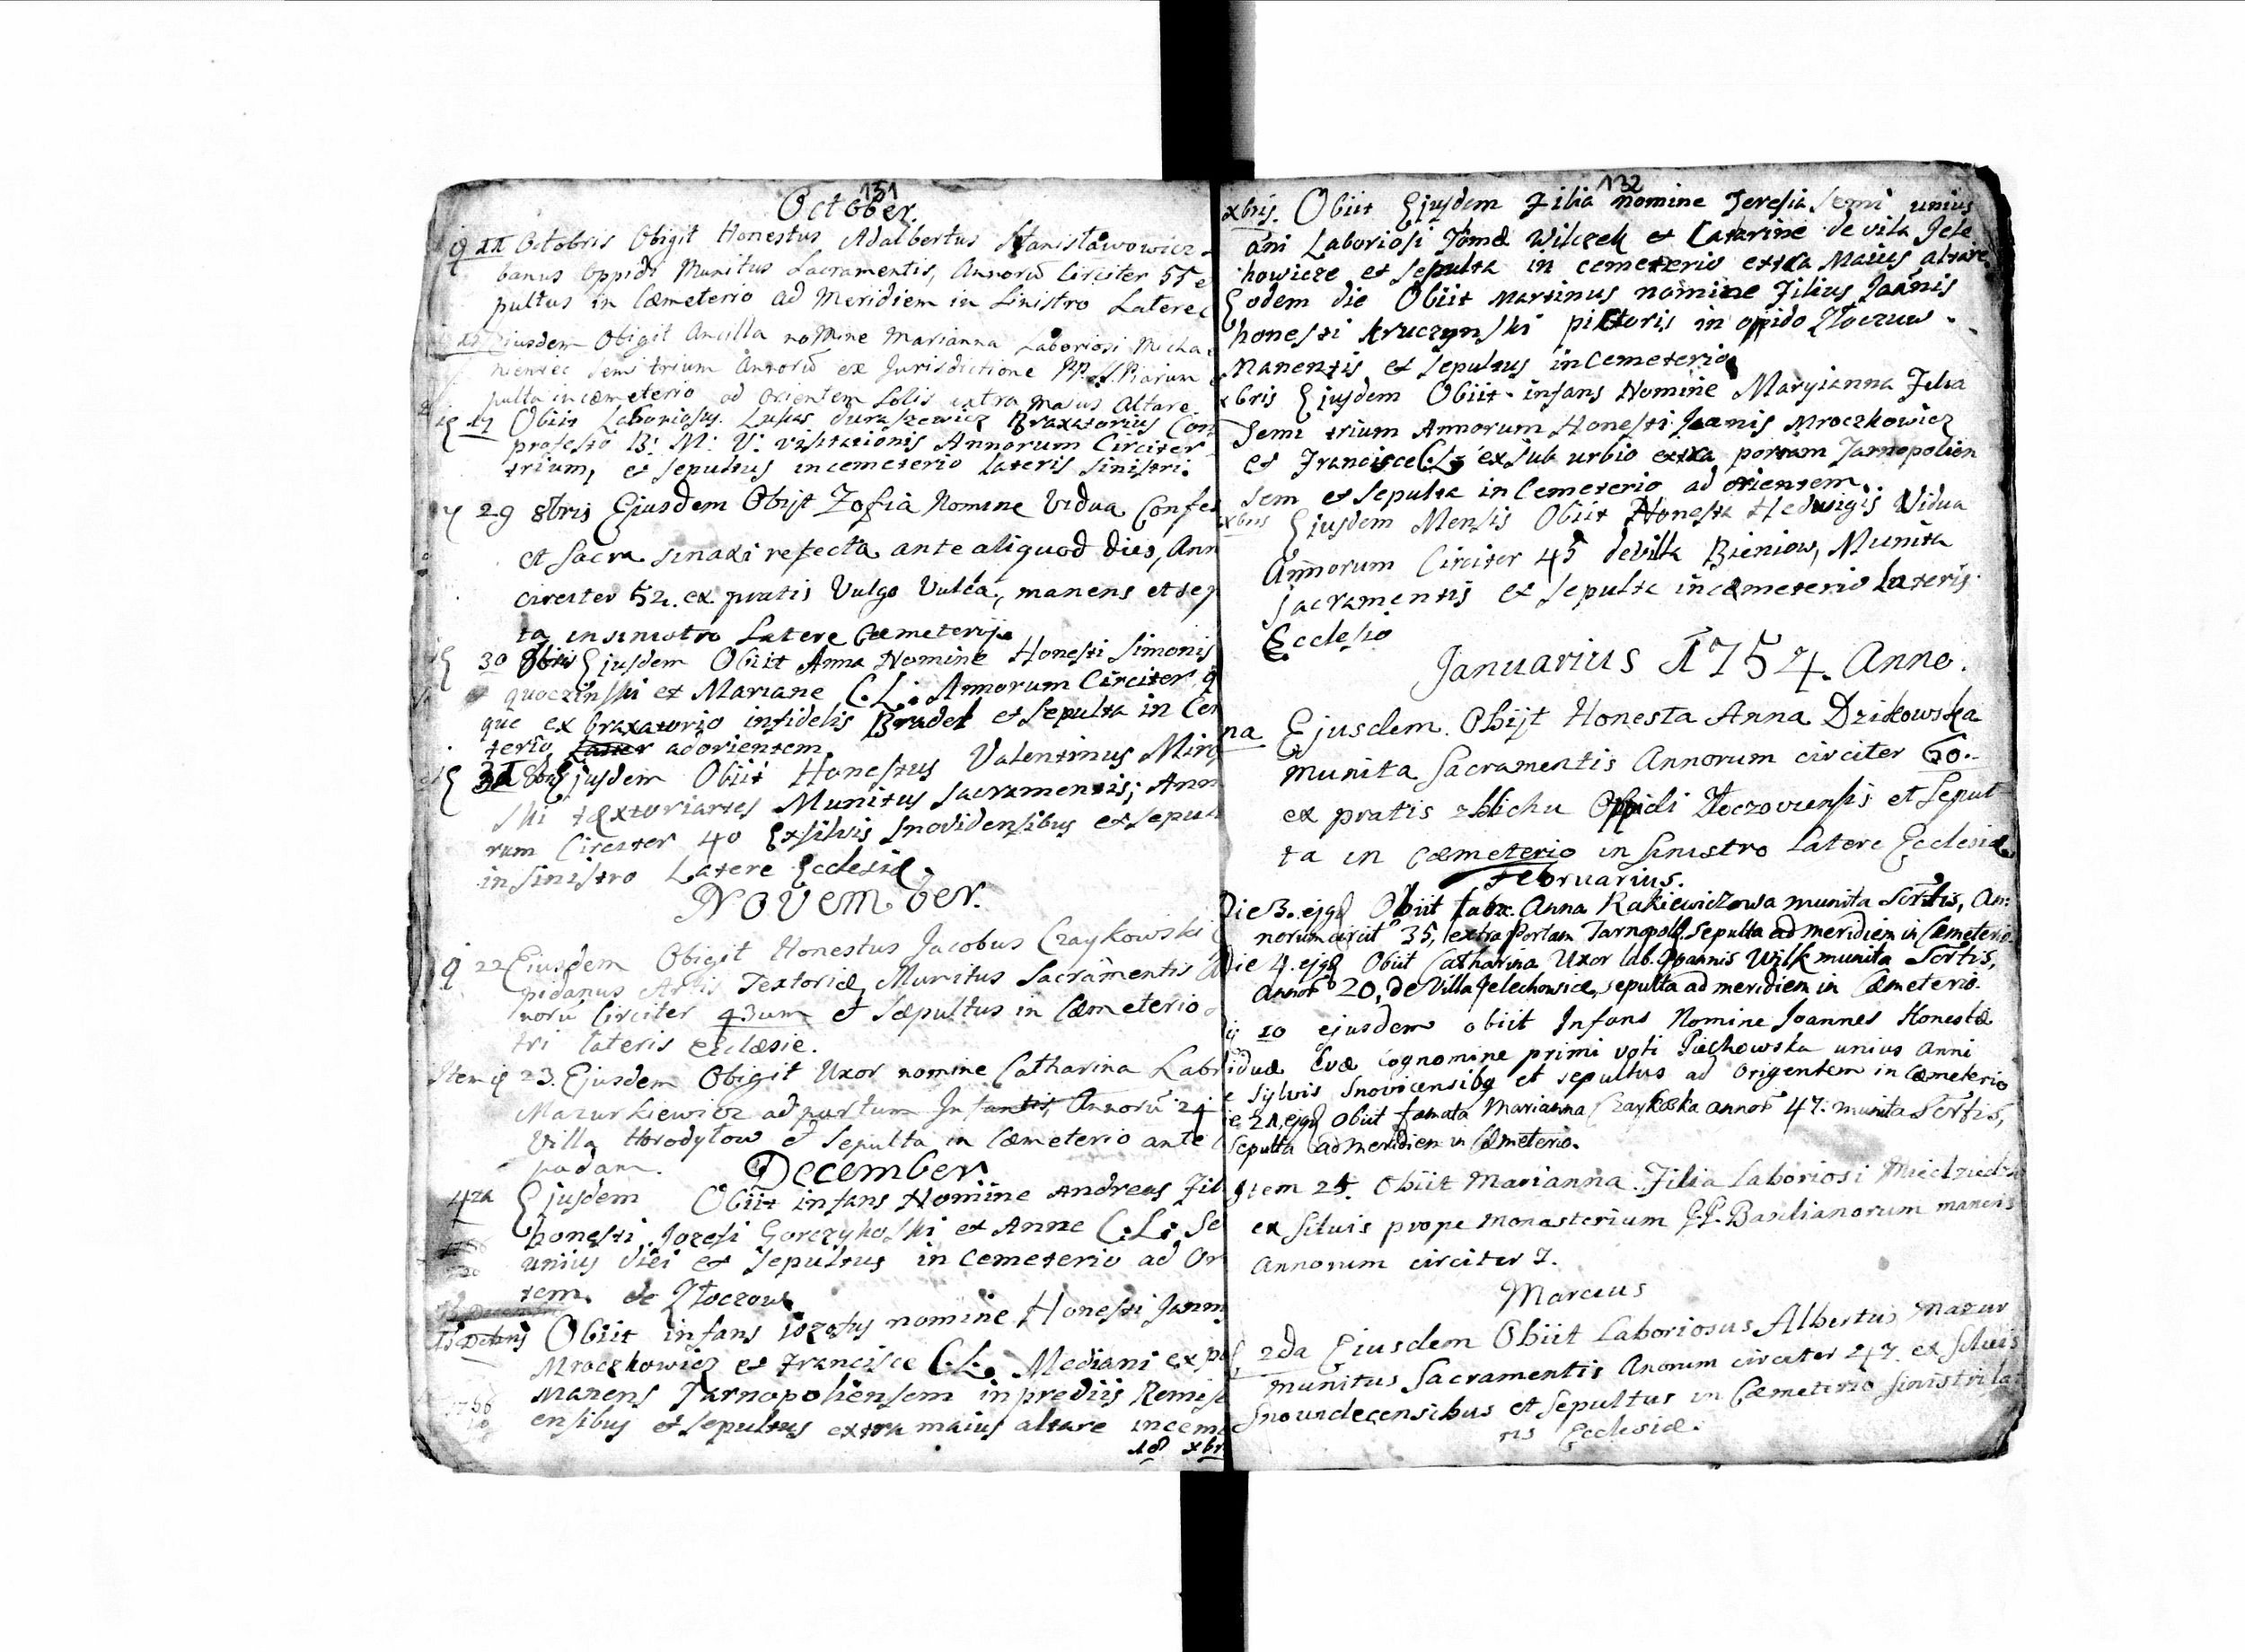 131
October.
11 Octobris Obigit Honestus Adalbertus Stanisławowicz
banus Oppidi Munitus Sacramentis, Annorū Circiter 55
pultus in Cæmeterio ad Meridiem in Sinistro Latere
Ejusdem Obigit Ancilla nomine Marianna Laboriosi Micha
niewiec semi trium Annorū ex Jurisdictione PP. S. Piarum
pulta in cæmeterio ad Orientem Solis extra Maius Altare
17 Obiit Laboriosus Lukas Duraszewicz Braxatorius Con
professo B: M: V: visitationis Annorum Circiter
trium, et sepultus in cemeterio lateris sinistri.
29 8bris Ejusdem Obijt Zofia Nomine Vidua Confes
et sacra sinaxi refecta ante aliquod dies, Ann
circiter 52. ex pratis Vulgo Vulca, manens et sep
ta in sinistro Latere Cæmeterij.
30 8bris Ejusdem Obiit Anna Nomine Honesti Simonis
quoczinski et Mariane C.L. Annorum Circiter
que ex braxatorio infidelis Bradel et sepulta in Cem
terio ad orientem
31 8bris Ejusdem Obiit Honestus Valentinus Miro
ski textoriartes Munitus sacramentis; Anno
rum Circiter 40 Ex silvis Snovidensibus et sepul
in sinistro Latere Ecclesiæ.
November.
22 Ejusdem Obigit Honestus Jacobus Czaykowski
pidanus Artis Textoriæ Munitus Sacramentis
norū Circiter 43um et Sæpultus in Cæmeterio
tri lateris ecclæsie.
Item 23. Ejusdem Obigit Uxor nomine Catharina Labr
Mazurkiewicz ad partum Infantis, Annorū 24
Villa Horodyłow et Sepulta in Cæmeterio ante
padam.
December
4ta Ejusdem Obiit infans Nomine Andreas Fil
honesti Jozefi Gorczykoski et Anne C.L. Se
unius diei et Sepultus in Cemeterio ad Or
tem. de Złoczow
Obiit infans iozefus nomine Honesti Janni
Mroczkowicz et Francisce C.L. Mediani ex po
Manens Tarnopoliensem in prediis Remis
ensibus et sepultus extra maius altare in cem
18 xbr
132
xbris. Obiit Ejusdem Filia nomine Teresia semi unius
ani Laboriosi Tomæ Wilczek et Catarine de vila Jele
howicze et sepulta in cemeterio extra Maius altare
Eodem die Obiit Martinus nomine Filius Joannis
honesti Kruczynski pictoris in opido Złoczuw.
Manentis et sepultus in Cemeterio
xbris Ejusdem Obiit infans Nomine Maryianna Filia
Semi trium Annorum Honesti Joanis Mroczkowicz
et Francisce C.L. ex sub urbio extra portam Tarnopolien
sem et sepulta in Cemeterio ad orientem.
xbris Ejusdem Mensis Obiit Honesta Hedwigis Vidua
Annorum Circiter 45 de villa Bieniow, Munita
sacramentis et sepulta in cæmeterio lateris
Ecclesio
Januarius 1754. Anno.
na Ejusdem. Obijt Honesta Anna Dzikowska
munita Sacramentis Annorum circiter 60.
ex pratis Oppidi Złoczoviensis et Sepul
ta in Cæmeterio in sinistro Latere Ecclesiæ
Februarius.
Die 3. ejqd Obiit Anna Rakiewiczowa munita Scrtis, An:
norum circit 35, extra Portam Tarnopol. Sepulta ad meridiem in Cæmeterio
Die 4. ejqd Obiit Catharina Uxor lab. Joannis Wilk munita Scrtis,
Annor 20, de Villa Jelechowice, sepulta ad meridiem in Cæmeterio.
10 ejusdem obiit Infans Nomine Joannes Honestæ
iduæ Evæ Cognomine primi voti Piechowska unius Anni
e sylvis Snovicensibq et sepultus ad Origentem in Cæmeterio
ie 21. ejqd Obiit famata Marianna Czaykoska annor 47. munita Scrtis,
sepulta ad meridiem in Cæmeterio.
Item 25. Obiit Marianna Filia Laboriosi
ex silvis prope Monasterium P.P. Basilianorum manens
Annorum circiter 7.
Marcius
2da Ejusdem Obiit Laboriosus Albertus Mazur
munitus Sacramentis Anorum circiter 27. ex Silvis
Snovidecensibus et Sepultus in Cæmeterio sinistri la
ris Ecclesiæ.